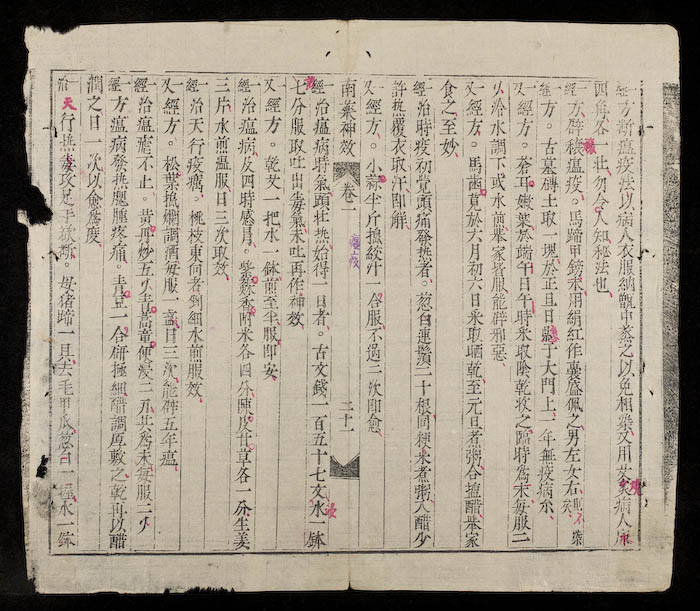 一經方斷瘟疫法以病人衣服納甑中蒸之以免相染又用艾灸病人床
四角各一壯勿令人知秘法也
一經方辟穢瘟疫。馬蹄甲鎊末用絹紅作囊盛佩之男左女右則不染
一經方。古墓磚土取一塊於正旦日懸于大門上一年無疫病氽
又經方。蒼耳嫩葉於端午日午時采取陰乾收之臨時爲末每服二
火冷水調下或水煎舉家皆服能辟邪惡
又經方。馬齒莧於六月初六日采取晒乾至元旦煮粥合搵醋舉家
食之至妙
一經治時疫初覺頭痛發熱者。葱白連鬚二十根同粳米煮粥入醋少
許熱覆衣取汗即解
又經方。小蒜半斤搗絞汁一合服不過三次即愈
南藥神效 卷二 瘟疫 二十一
一經治瘟病時氣頭壯熱始得一日者。古文錢一百五十七文水一鉢
七分服取吐出毒氣未吐再作神效
又經方。乾艾一把水一鉢煎至半服即安
一經治瘟病及四時感冒。紫蘇香附米各四分陳皮甘草各一分生姜
三片水煎溫服日三次取效
一經治天行疫癘。桃枝東向者剉細水煎服效
又經方。松葉搗爛調酒每服一盞日三次能辟五年瘟
一經治瘟瘧不止。黃丹炒五火青蒿童便浸二斤共爲末每服二火
一經方瘟病發熱腿腫疼痛。青豆一合研極細醋調厚敷之乾再以醋
潤之日一次以愈爲度
一治天行熱毒攻足手欲斷。母猪蹄一具去毛甲瓜葱白一握水一鉢